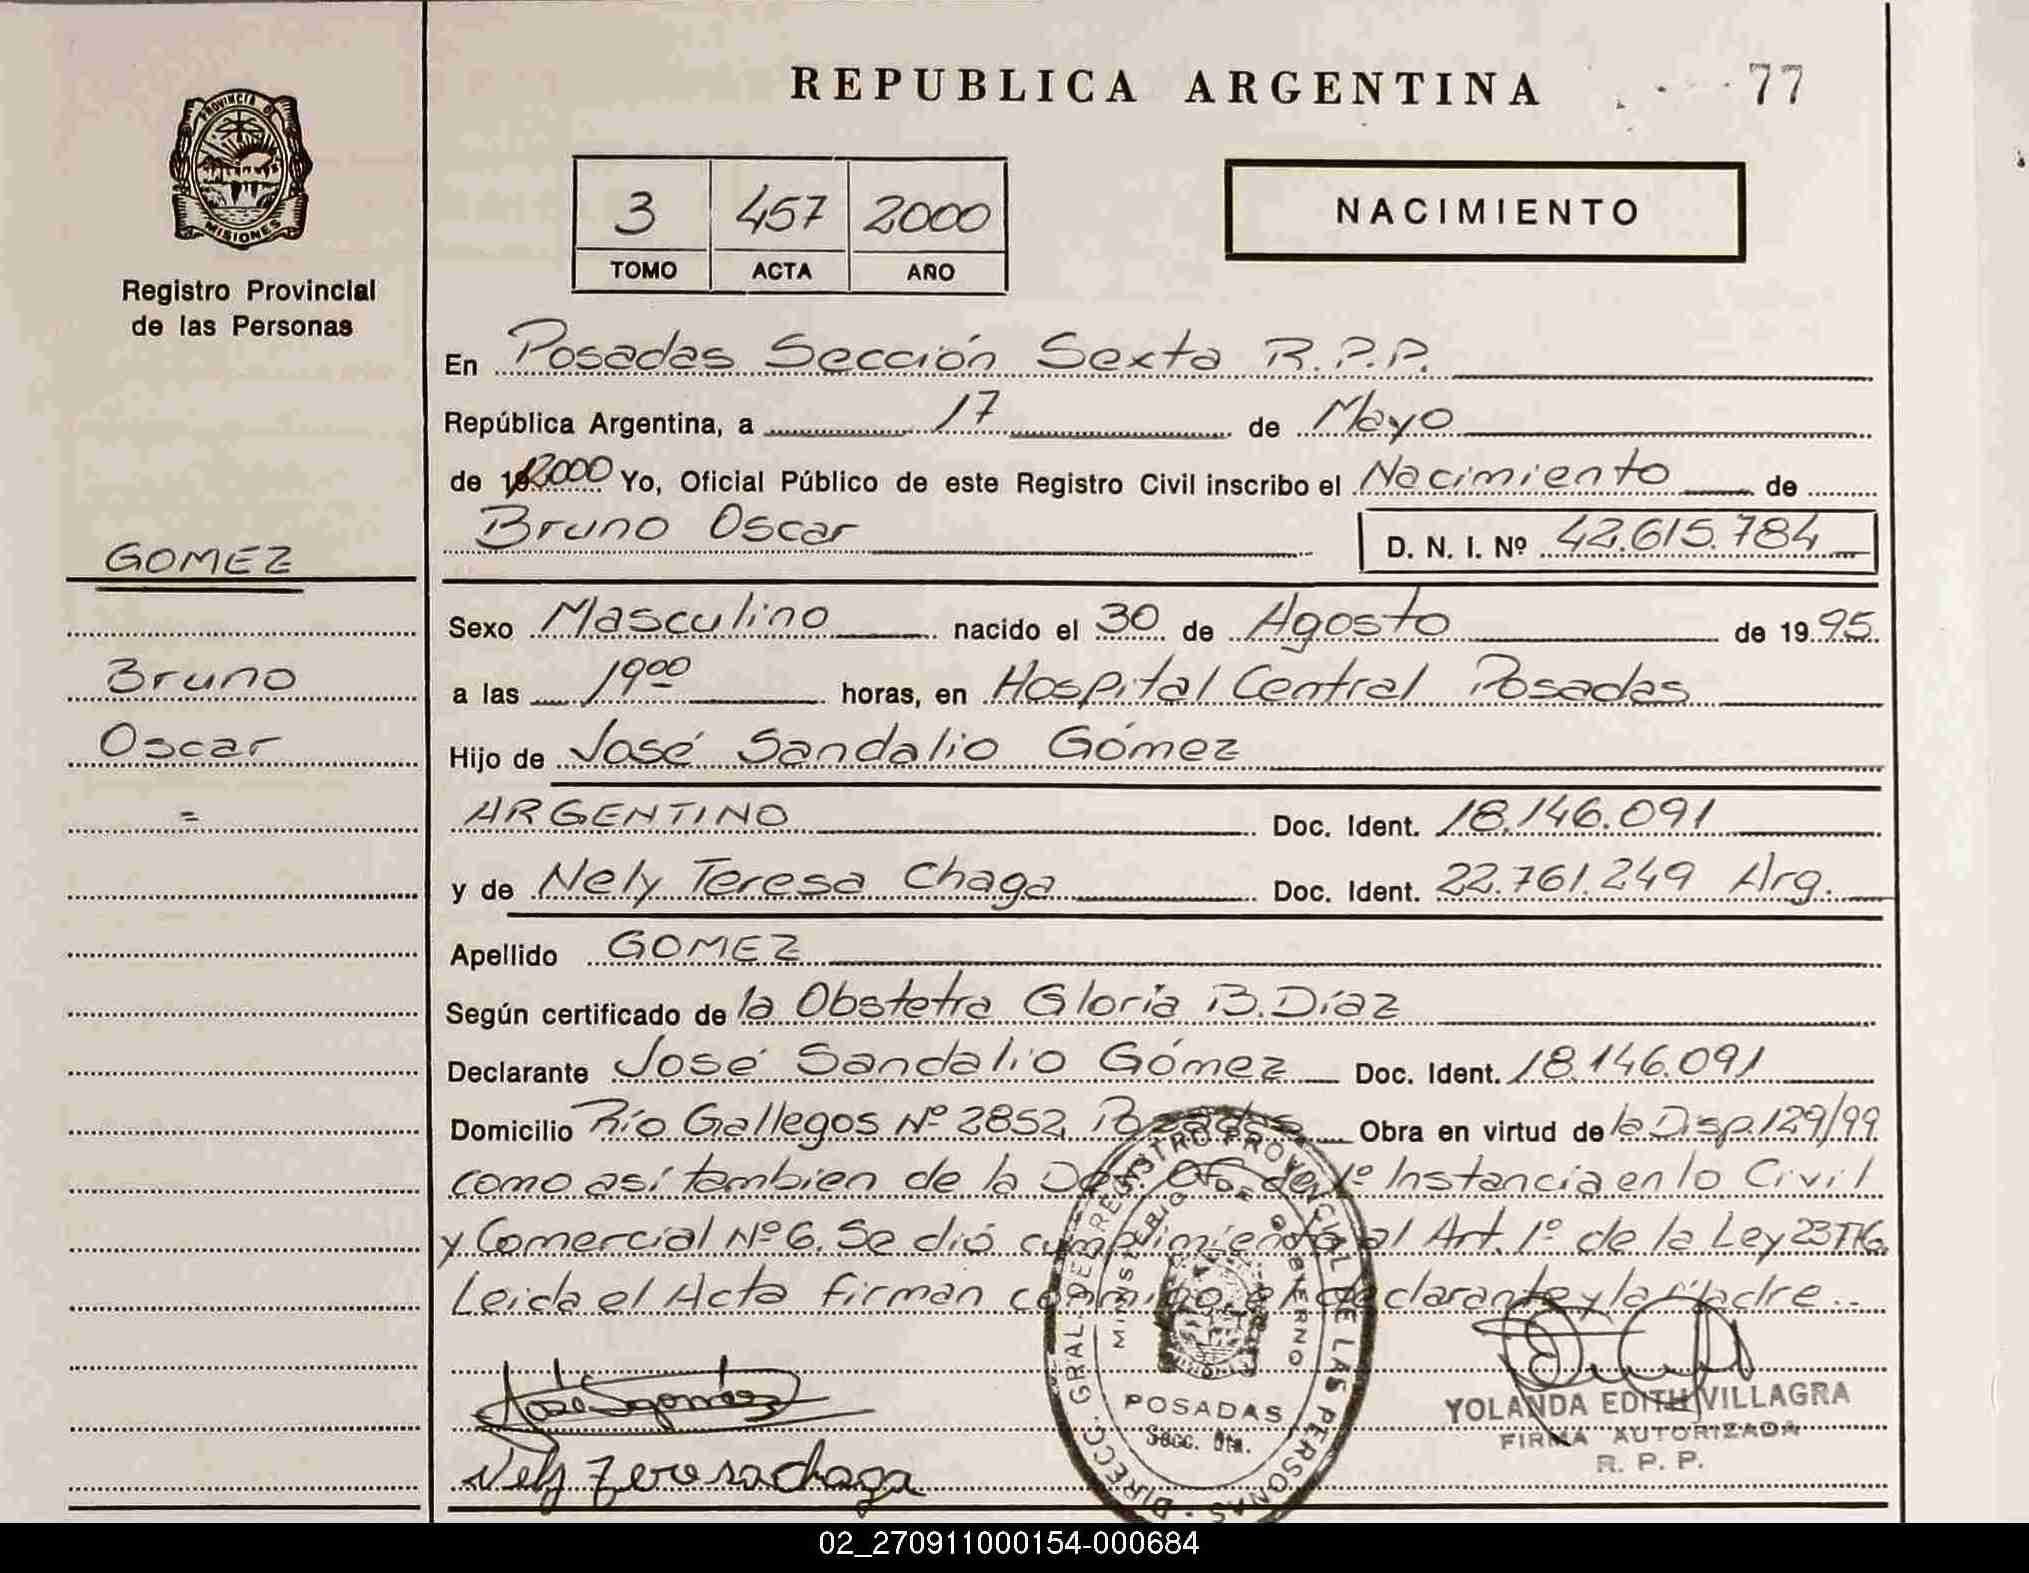 REPUBLICA ARGENTINA
77
PROVINCIA DE
MISIONES
Registro Provincial
de las Personas
3 457 2000
TOMO ACTA AÑO
NACIMIENTO
En Posadas Sección Sexta R.P.P.
República Argentina, a 17 de Mayo
de 2000 Yo, Oficial Público de este Registro Civil inscribo el Nacimiento de
Bruno Oscar D. N. I. Nº 42.615.784
GOMEZ
Bruno
Oscar
=
Sexo Masculino nacido el 30 de Agosto de 1995.
a las 19⁰⁰ horas, en Hospital Central Posadas
Hijo de José Sandalio Gómez
ARGENTINO Doc. Ident. 18.146.091
y de Nely Teresa Chaga Doc. Ident. 22.761.249 Arg.
Apellido GOMEZ
Según certificado de la Obstetra Gloria B. Díaz
Declarante José Sandalio Gómez Doc. Ident. 18.146.091
Domicilio Río Gallegos Nº 2852, Posadas Obra en virtud de la Disp. 129/99
como así tambien de la Def. Of. de 1º Instancia en lo Civil
y Comercial Nº 6. Se dió cumplimiento al Art. 1º de la Ley 23776.
Leida el Acta firman conmigo el declarante y la Madre..
José S gomez
Nely Teresa chaga
DIRECC. GRAL. DEL REGISTRO PROVINCIAL DE LAS PERSONAS
MINISTERIO DE GOBIERNO
POSADAS
Secc. 6ta.
YOLANDA EDITH VILLAGRA
FIRMA AUTORIZADA
R. P. P.
02_270911000154-000684